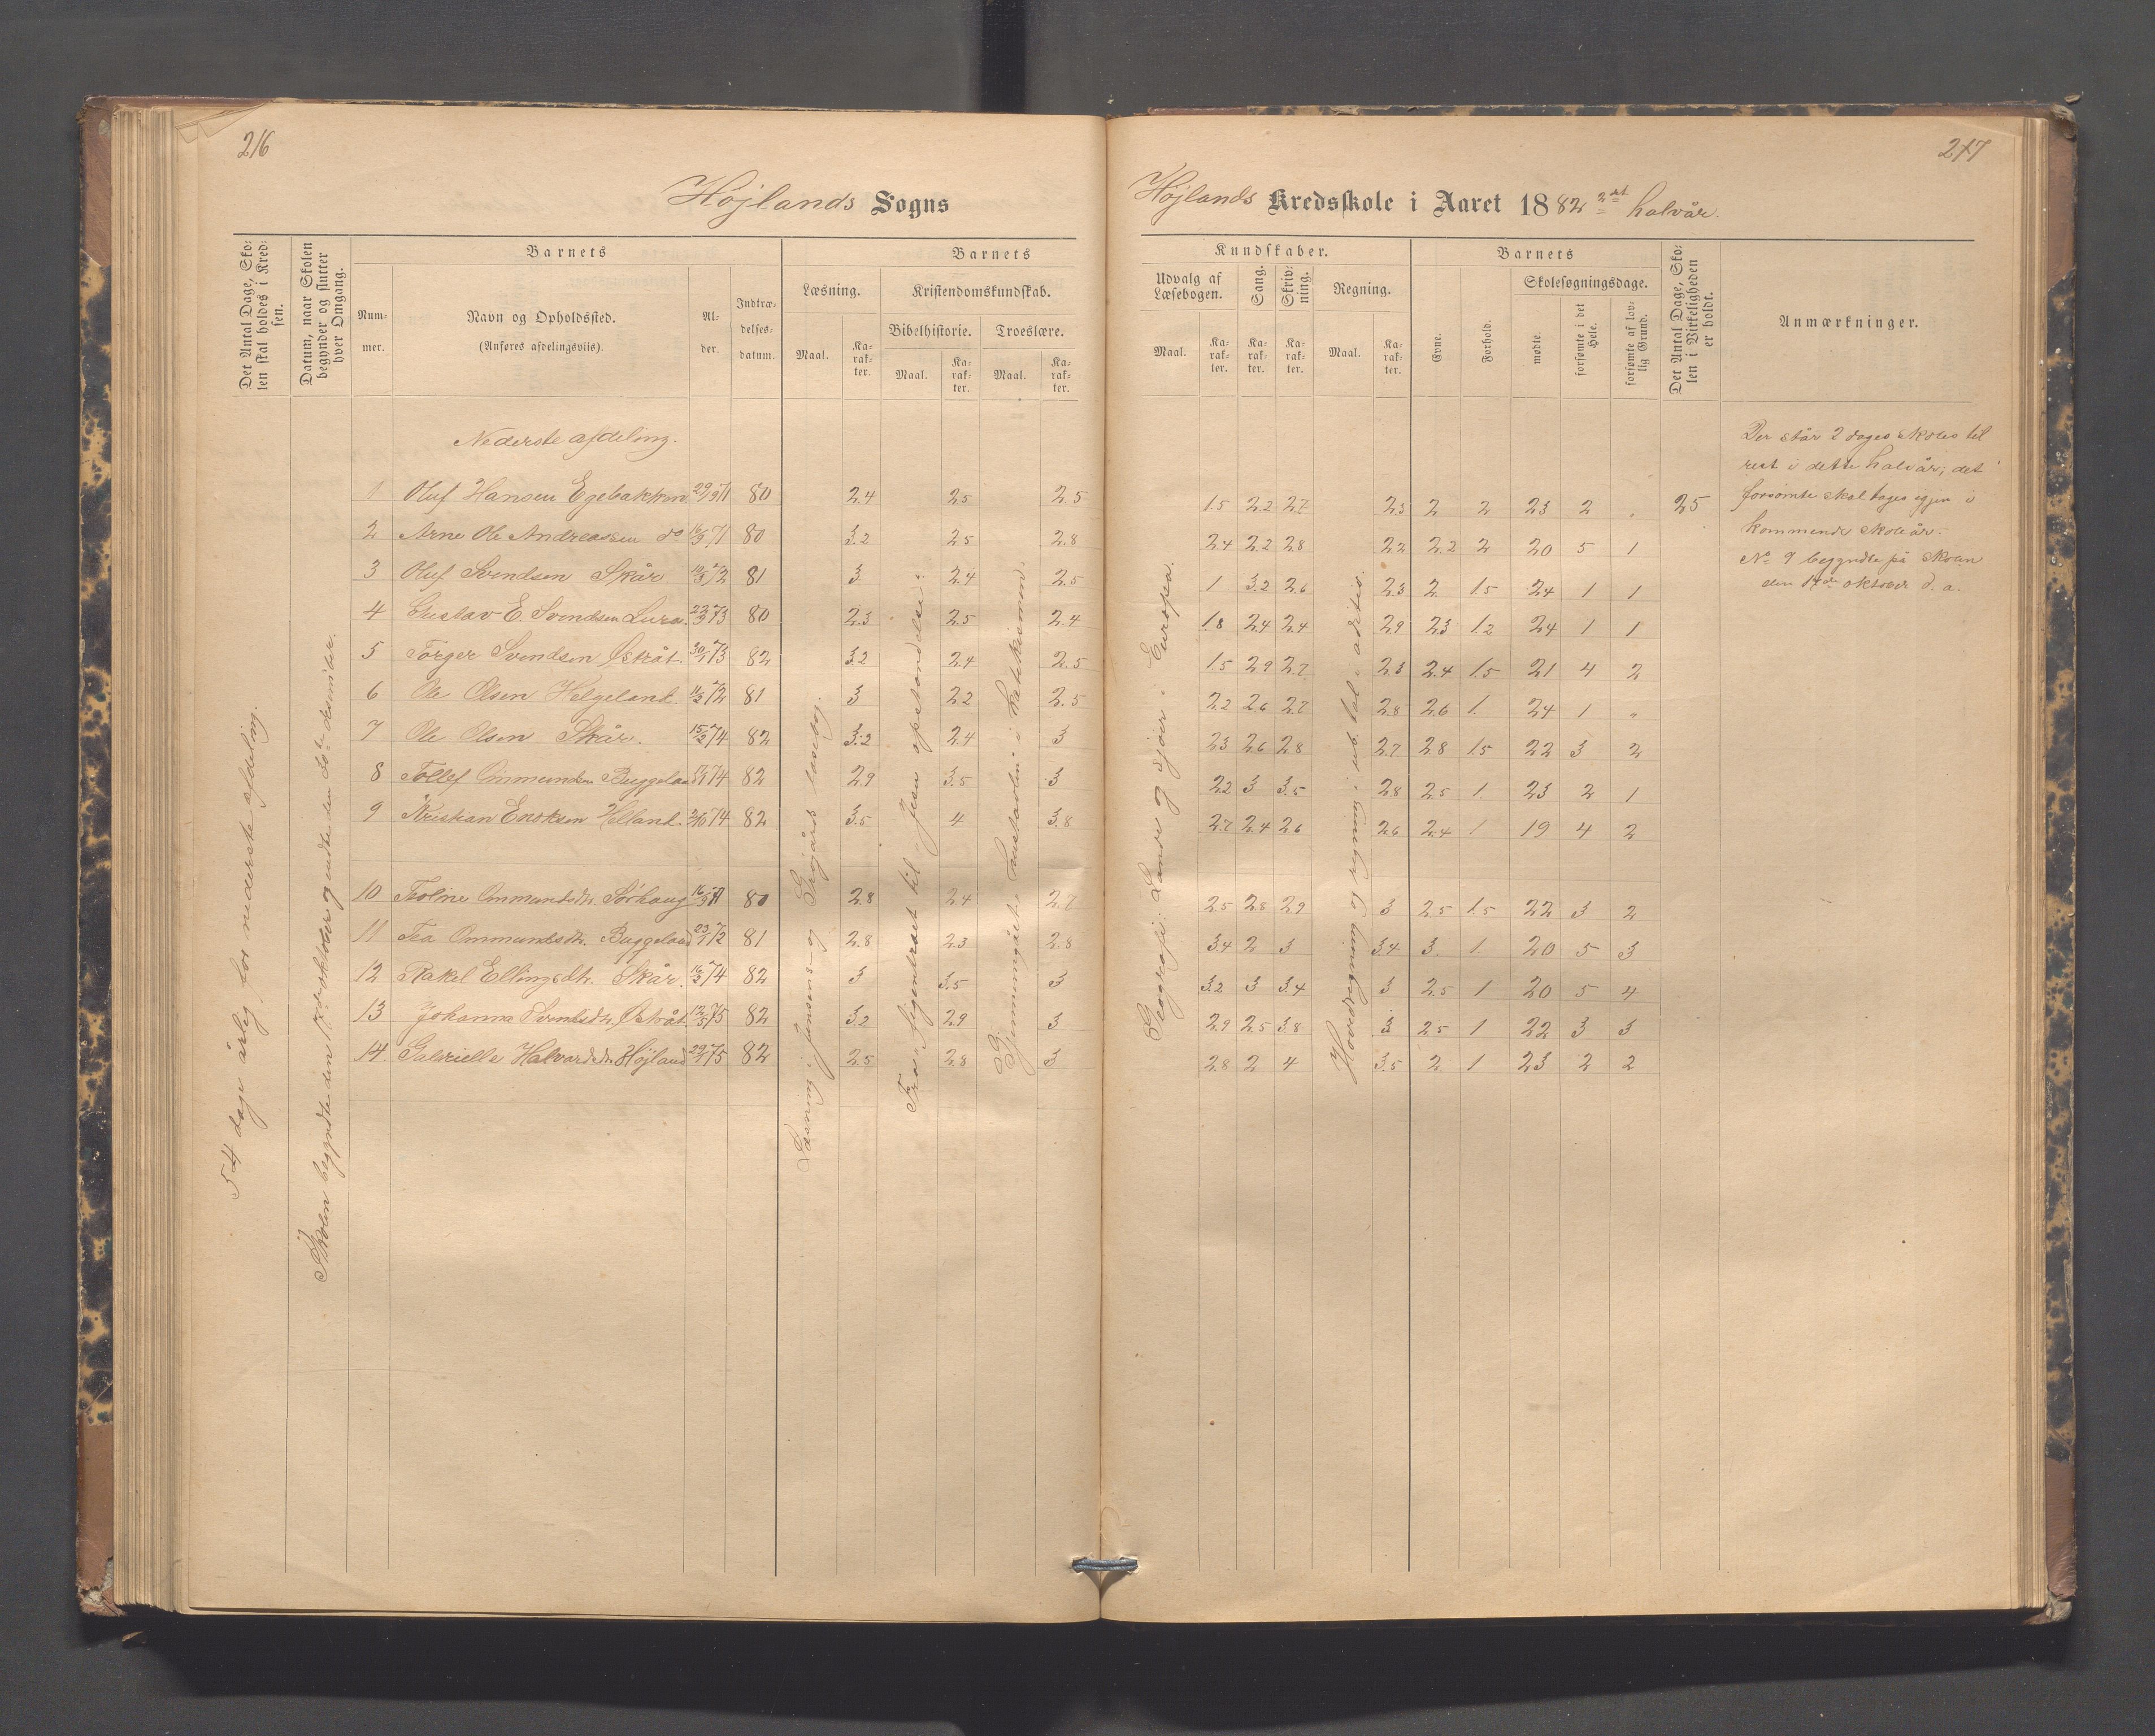 216
Højlands Sogns
Det Antal Dage, Sko-
len skal holdes i Kred-
sen.
Datum, naar Skolen
begynder og slutter
hver Omgang.
Barnets
Barnets
Num-
mer.
Navn og Opholdssted.
(Anføres afdelingsviis).
Al-
der.
Indtræ-
delses-
datum.
Læsning.
Kristendomskundskab.
Bibelhistorie.
Troeslære.
Maal.
Ka-
rak-
ter.
Maal.
Ka-
rak-
ter.
Maal.
Ka-
rak-
ter.
54 dage årlig for nederste afdeling.
Skolen begyndte den 17de oktober og endte den 20de desember.
Læsning i Jensens- og læsebog.
Fra figentræet til Jesu opstandelse.
Gjennemgået: hustavlen i katekismen.
Nederste afdeling.
1 Oluf Hansen Egebakken 29/9 71 80 2.4 2.5 2.5
2 Arne Ole Andreassen do 16/9 71 80 3.2 2.5 2.8
3 Oluf Svendsen Skår 10/3 72 81 3 2.4 2.5
4 Gustav E. Svendsen Lura. 22/3 73 80 2.3 2.5 2.4
5 Torger Svendsen Østråt. 30/1 73 82 3.2 2.4 2.5
6 Ole Olsen Helgeland. 11/2 72 81 3 2.2 2.5
7 Ole Olsen Skår. 15/2 74 82 3.2 2.4 3
8 Tollef Ommundsen Buggeland 74 82 2.9 3.5 3
9 Kristian Enoksen Helland. 2/10 74 82 3.5 4 3.8
10 Ommundsdtr. Sørhaug 16/9 71 80 2.8 2.4 2.7
11 Tea Ommundsdtr. Buggeland 23/1 72 81 2.8 2.3 2.8
12 Rakel Ellingsdtr. Skår. 16/2 74 82 3 3.5 3
13 Johanna Svendsdtr. Østråt 12/5 75 82 3.2 2.9 3
14. Gabrielle Halvardsdtr. Højland 29/1 75 82 2.5 2.8 3
217
Højlands Kredsskole i Aaret 1882 2det halvår.
Kundskaber.
Barnets
Udvalg af
Læsebogen.
Sang.
Skriv-
ning.
Regning.
Skolesøgningsdage.
Maal.
Ka-
rak-
ter.
Ka-
rak-
ter.
Ka-
rak-
ter.
Maal.
Ka-
rak-
ter.
Evne.
Forhold.
mødte.
forsømte i det
Hele.
forsømte af lov-
lig Grund.
Det Antal Dage, Sko-
len i Virkeligheden
er holdt.
Anmærkninger.
Geografi: Lande og sjøer i Europa.
Hovedregning og regning i ub. tal i aditio.
1.5 2.2 2.7 2.3 2 2 23 2 „ 25
2.4 2.2 2.8 2.2 2.2 2 20 5 1
1 3.2 2.6 2.3 2 1.5 24 1 1
1.8 2.4 2.4 2.9 2.3 1.2 24 1 1
1.5 2.9 2.7 2.3 2.4 1.5 21 4 2
2.2 2.6 2.7 2.8 2.6 1 24 1 „
2.3 2.6 2.8 2.7 2.8 1.5 22 3 2
2.2 3 3.5 2.8 2.5 1 23 2 1
2.7 2.4 2.6 2.6 2.4 1 19 4 2
2.5 2.8 2.9 3 2.5 1.5 22 3 2
3.4 2 3 3.4 3 1 20 5 3
3.2 3 3.4 3 2.5 1 20 5 4
2.9 2.5 3.8 3 2.5 1 22 3 3
2.8 2 4 3.5 2 1 23 2 2
Der står 2 dages skoles til
rest i dette halvår; det
forsømte skal tages igjen i
kommende skoleår.
No 9 begyndte på skolen
den oktober d. a.